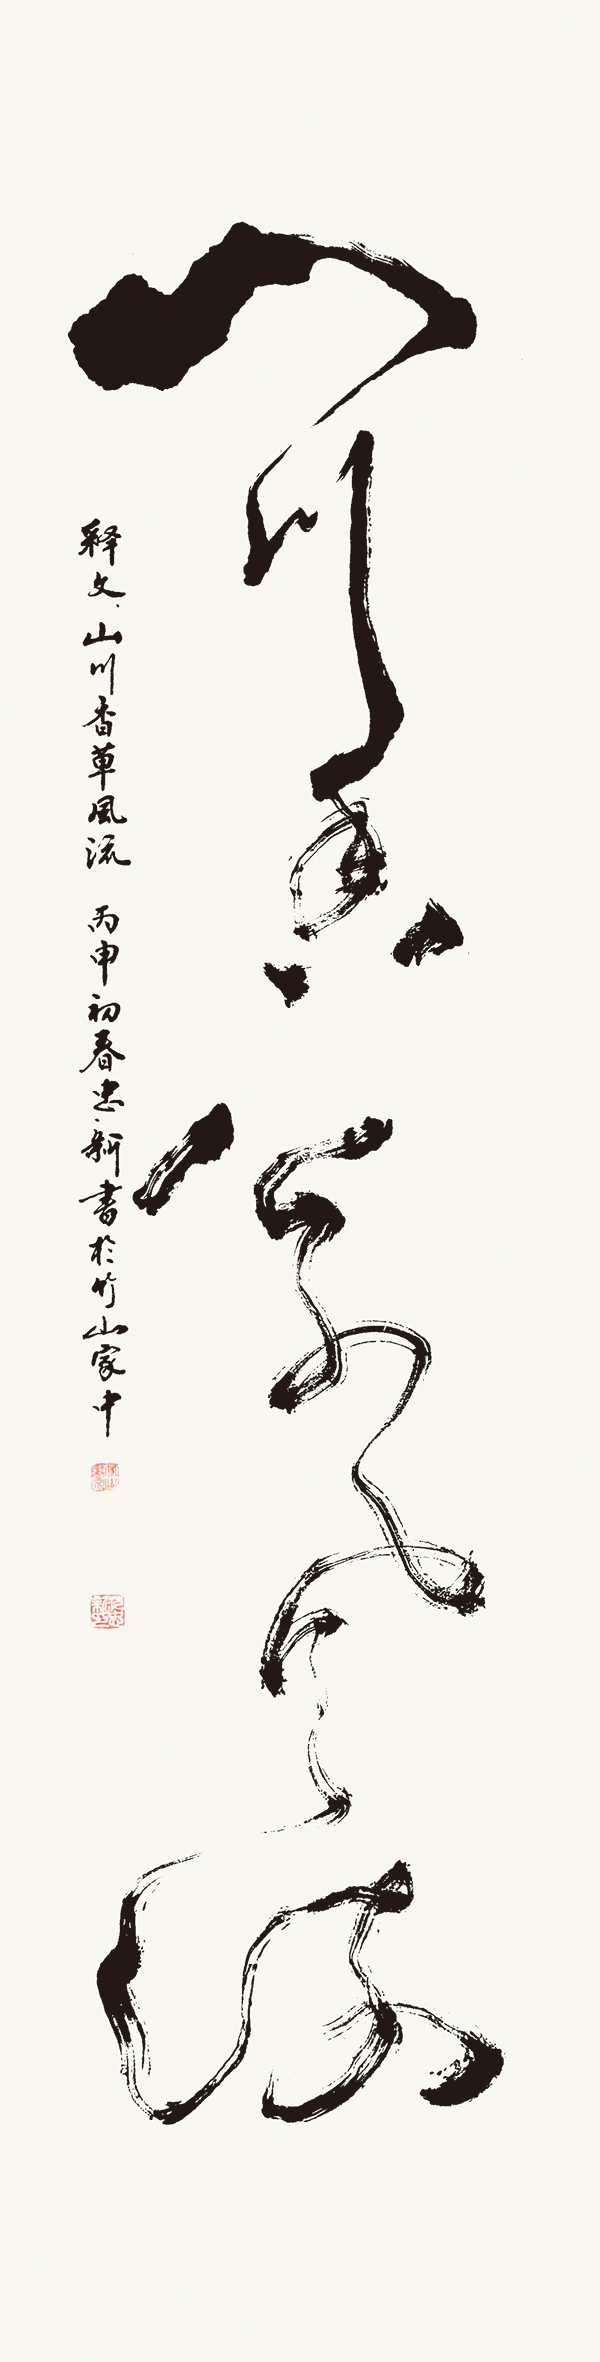 山川香草風流
释文、山川香草風流 丙申初春忠新書於竹山家中